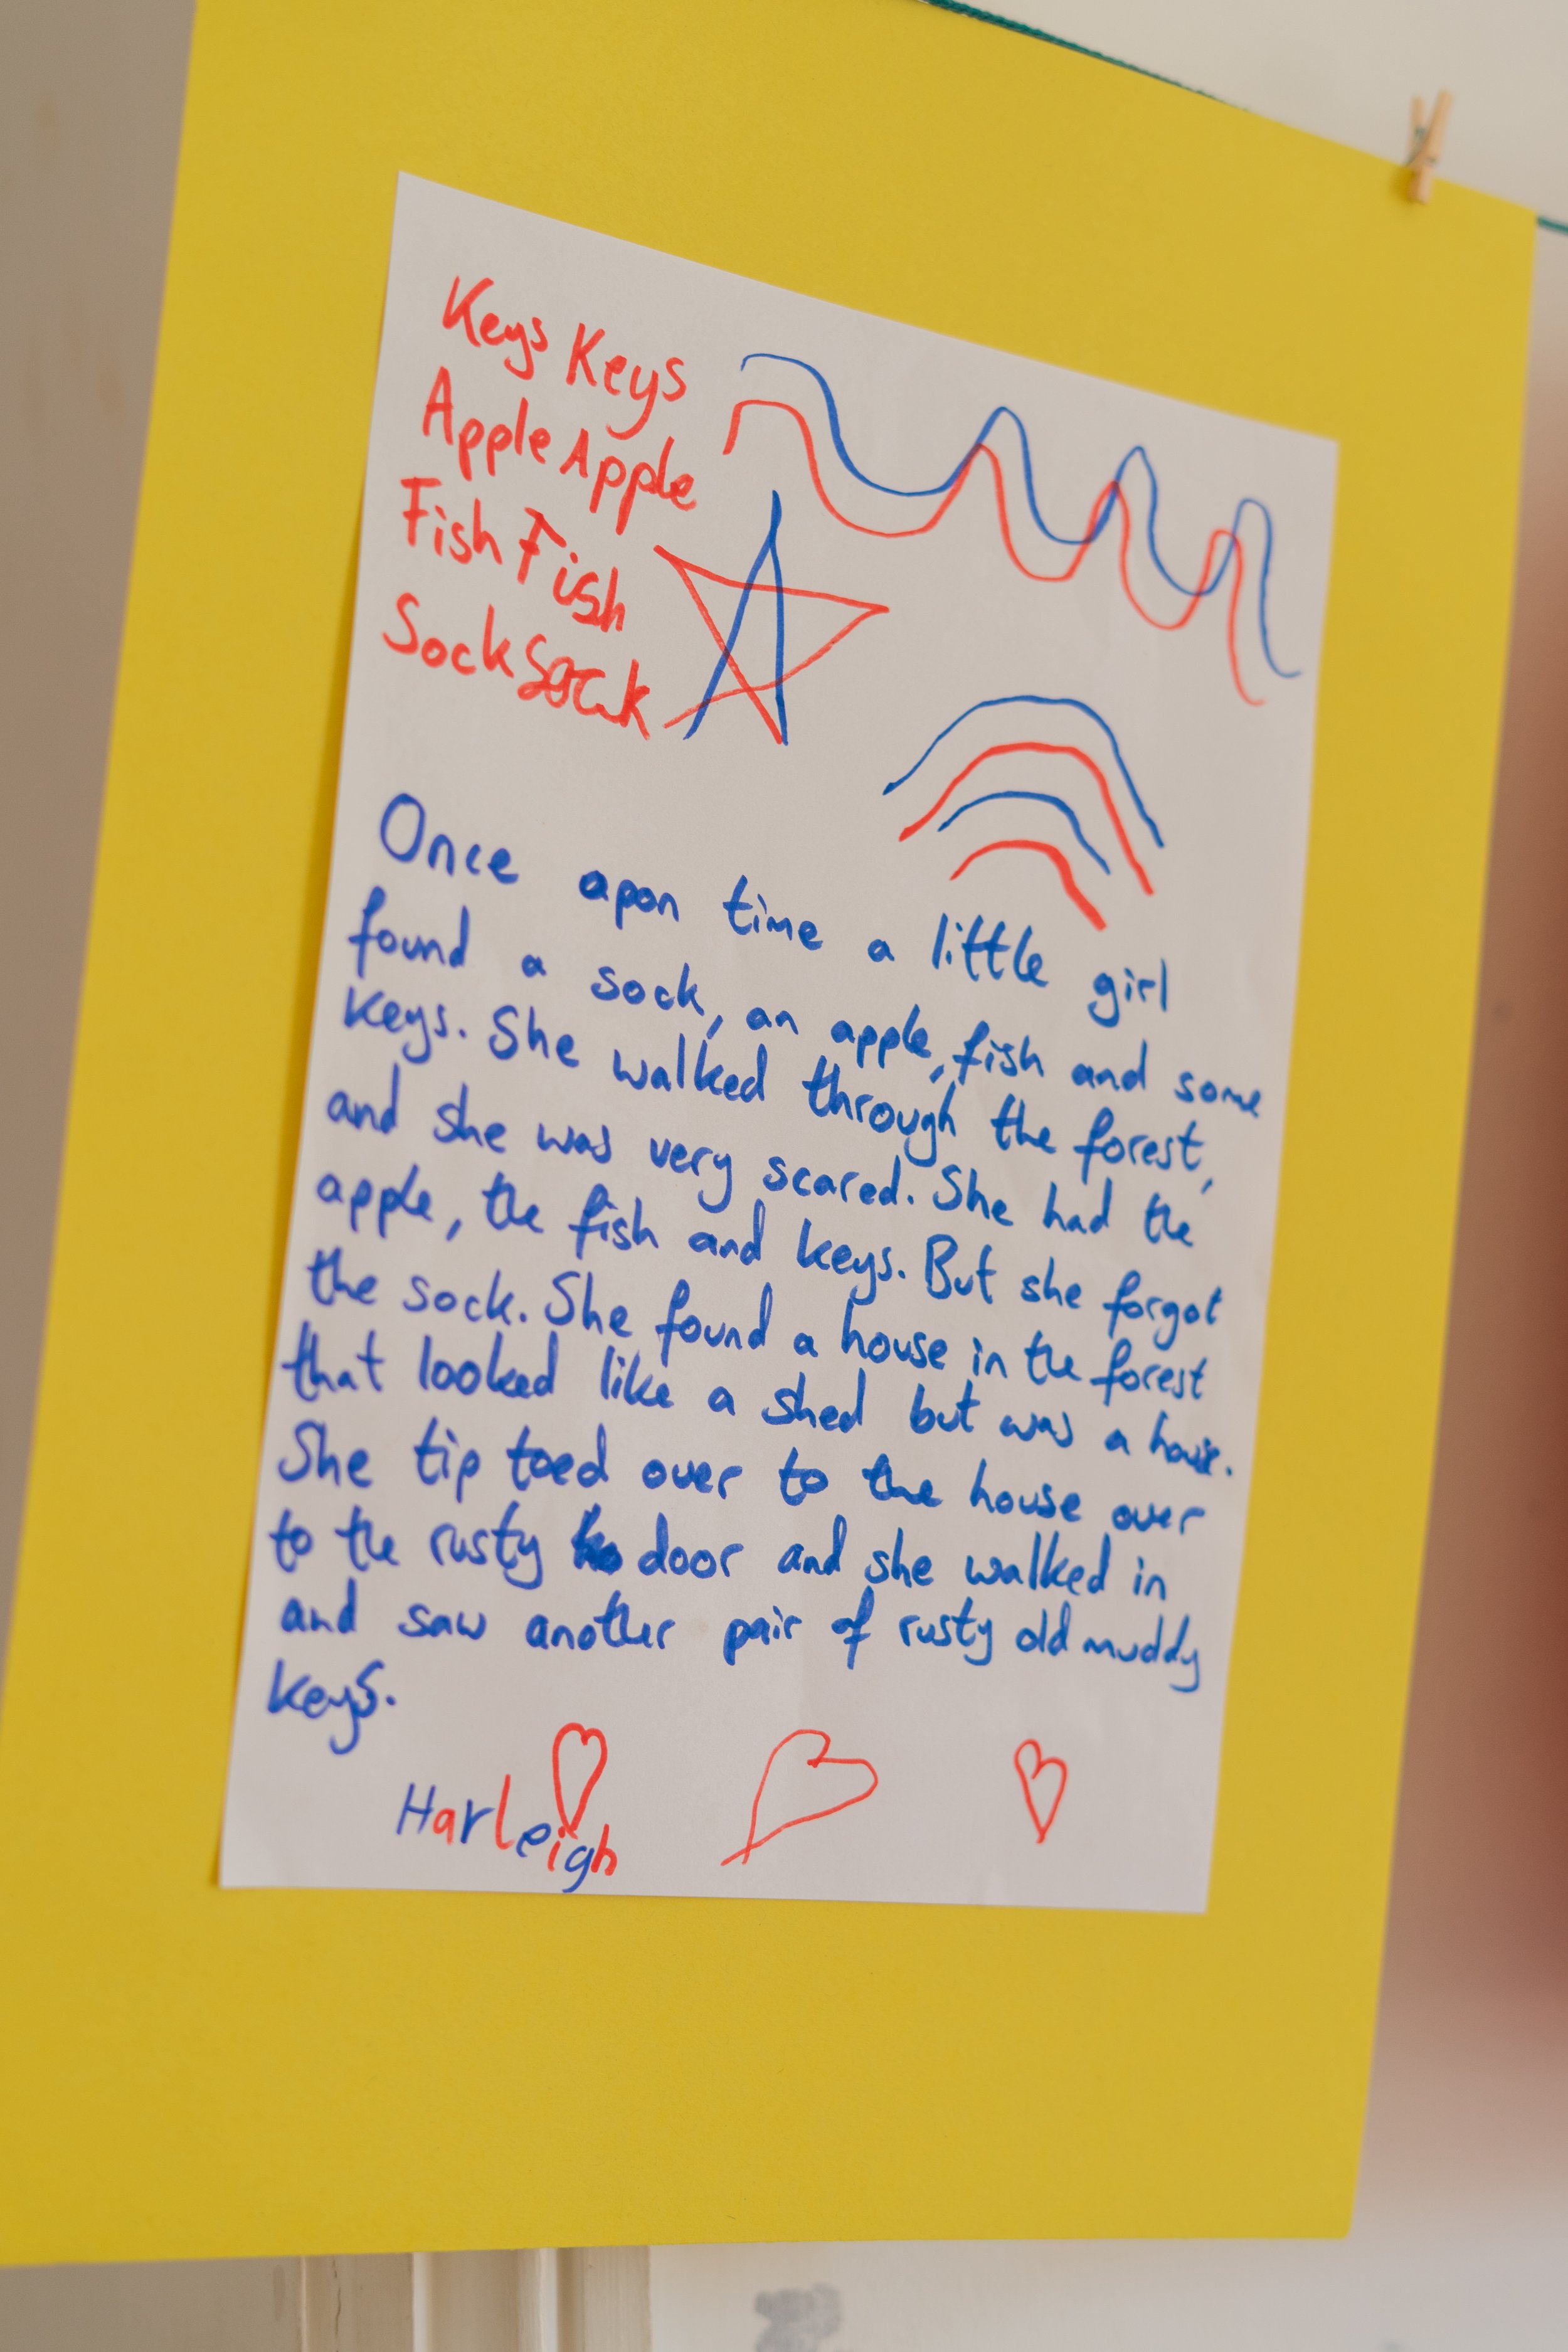 Keys Keys
Apple Apple
Fish Fish
Sock Sock
Once apon time a little girl
found a sock, an apple, fish and some
keys. She walked through the forest,
and she was very scared. She had the
apple, the fish and keys. But she forgot
the sock. She found a house in the forest
that looked like a shed but was a house.
She tip toed over to the house over
to the rusty door and she walked in
and saw another pair of rusty old muddy
keys.
Harleigh